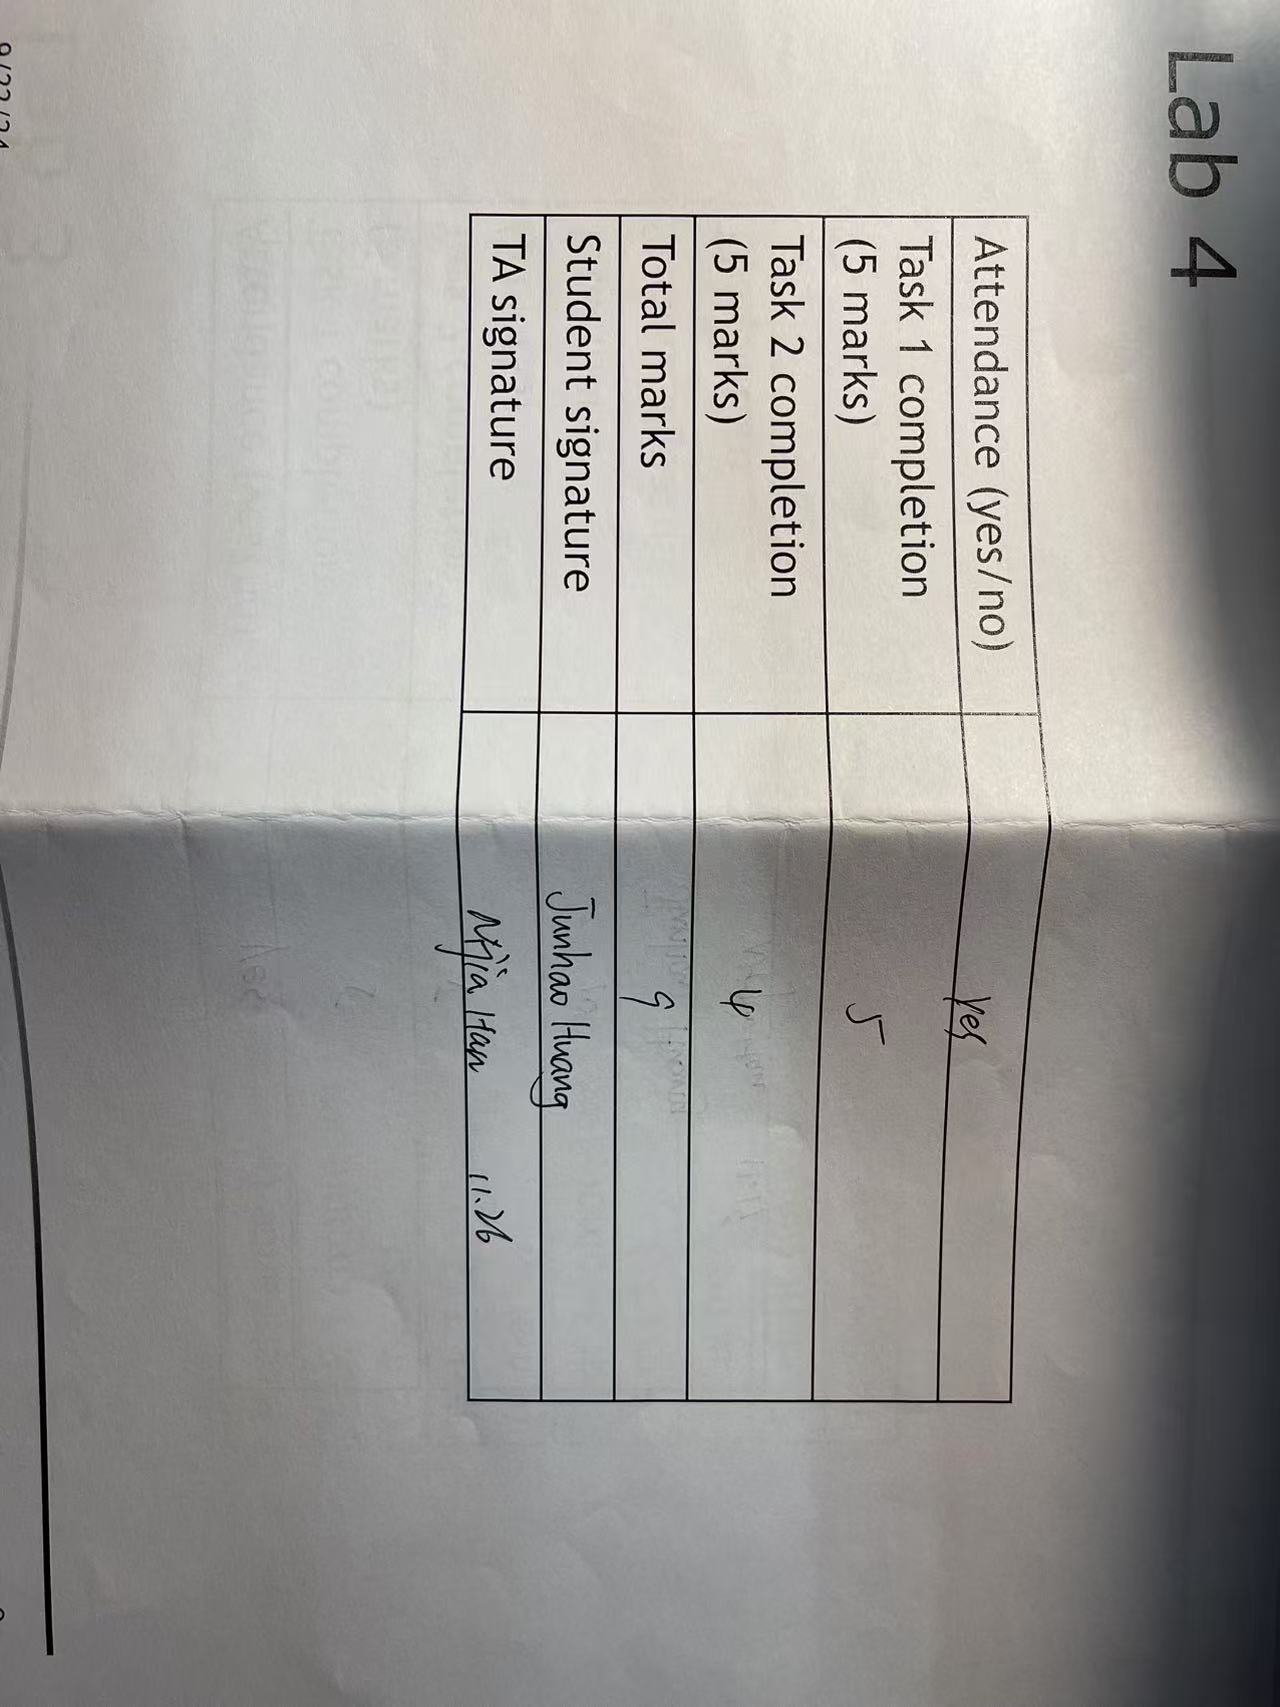 Lab 4
Attendance (yes/no) yes
Task 1 completion
(5 marks) 5
Task 2 completion
(5 marks) 4
Total marks 9
Student signature Junhao Huang
TA signature Han 11.26
9/22/24